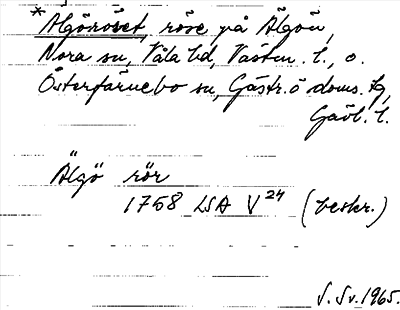 *Älgöröset, röse på Älgön,
Nora sn, Våla hd, Västm. l., o.
Österfärnebo sn, Gästr. ö doms. tg,
Gävl. l.
Älgö rör
1758 LSA V 24 (beskr.)
S. Sv. 1965.